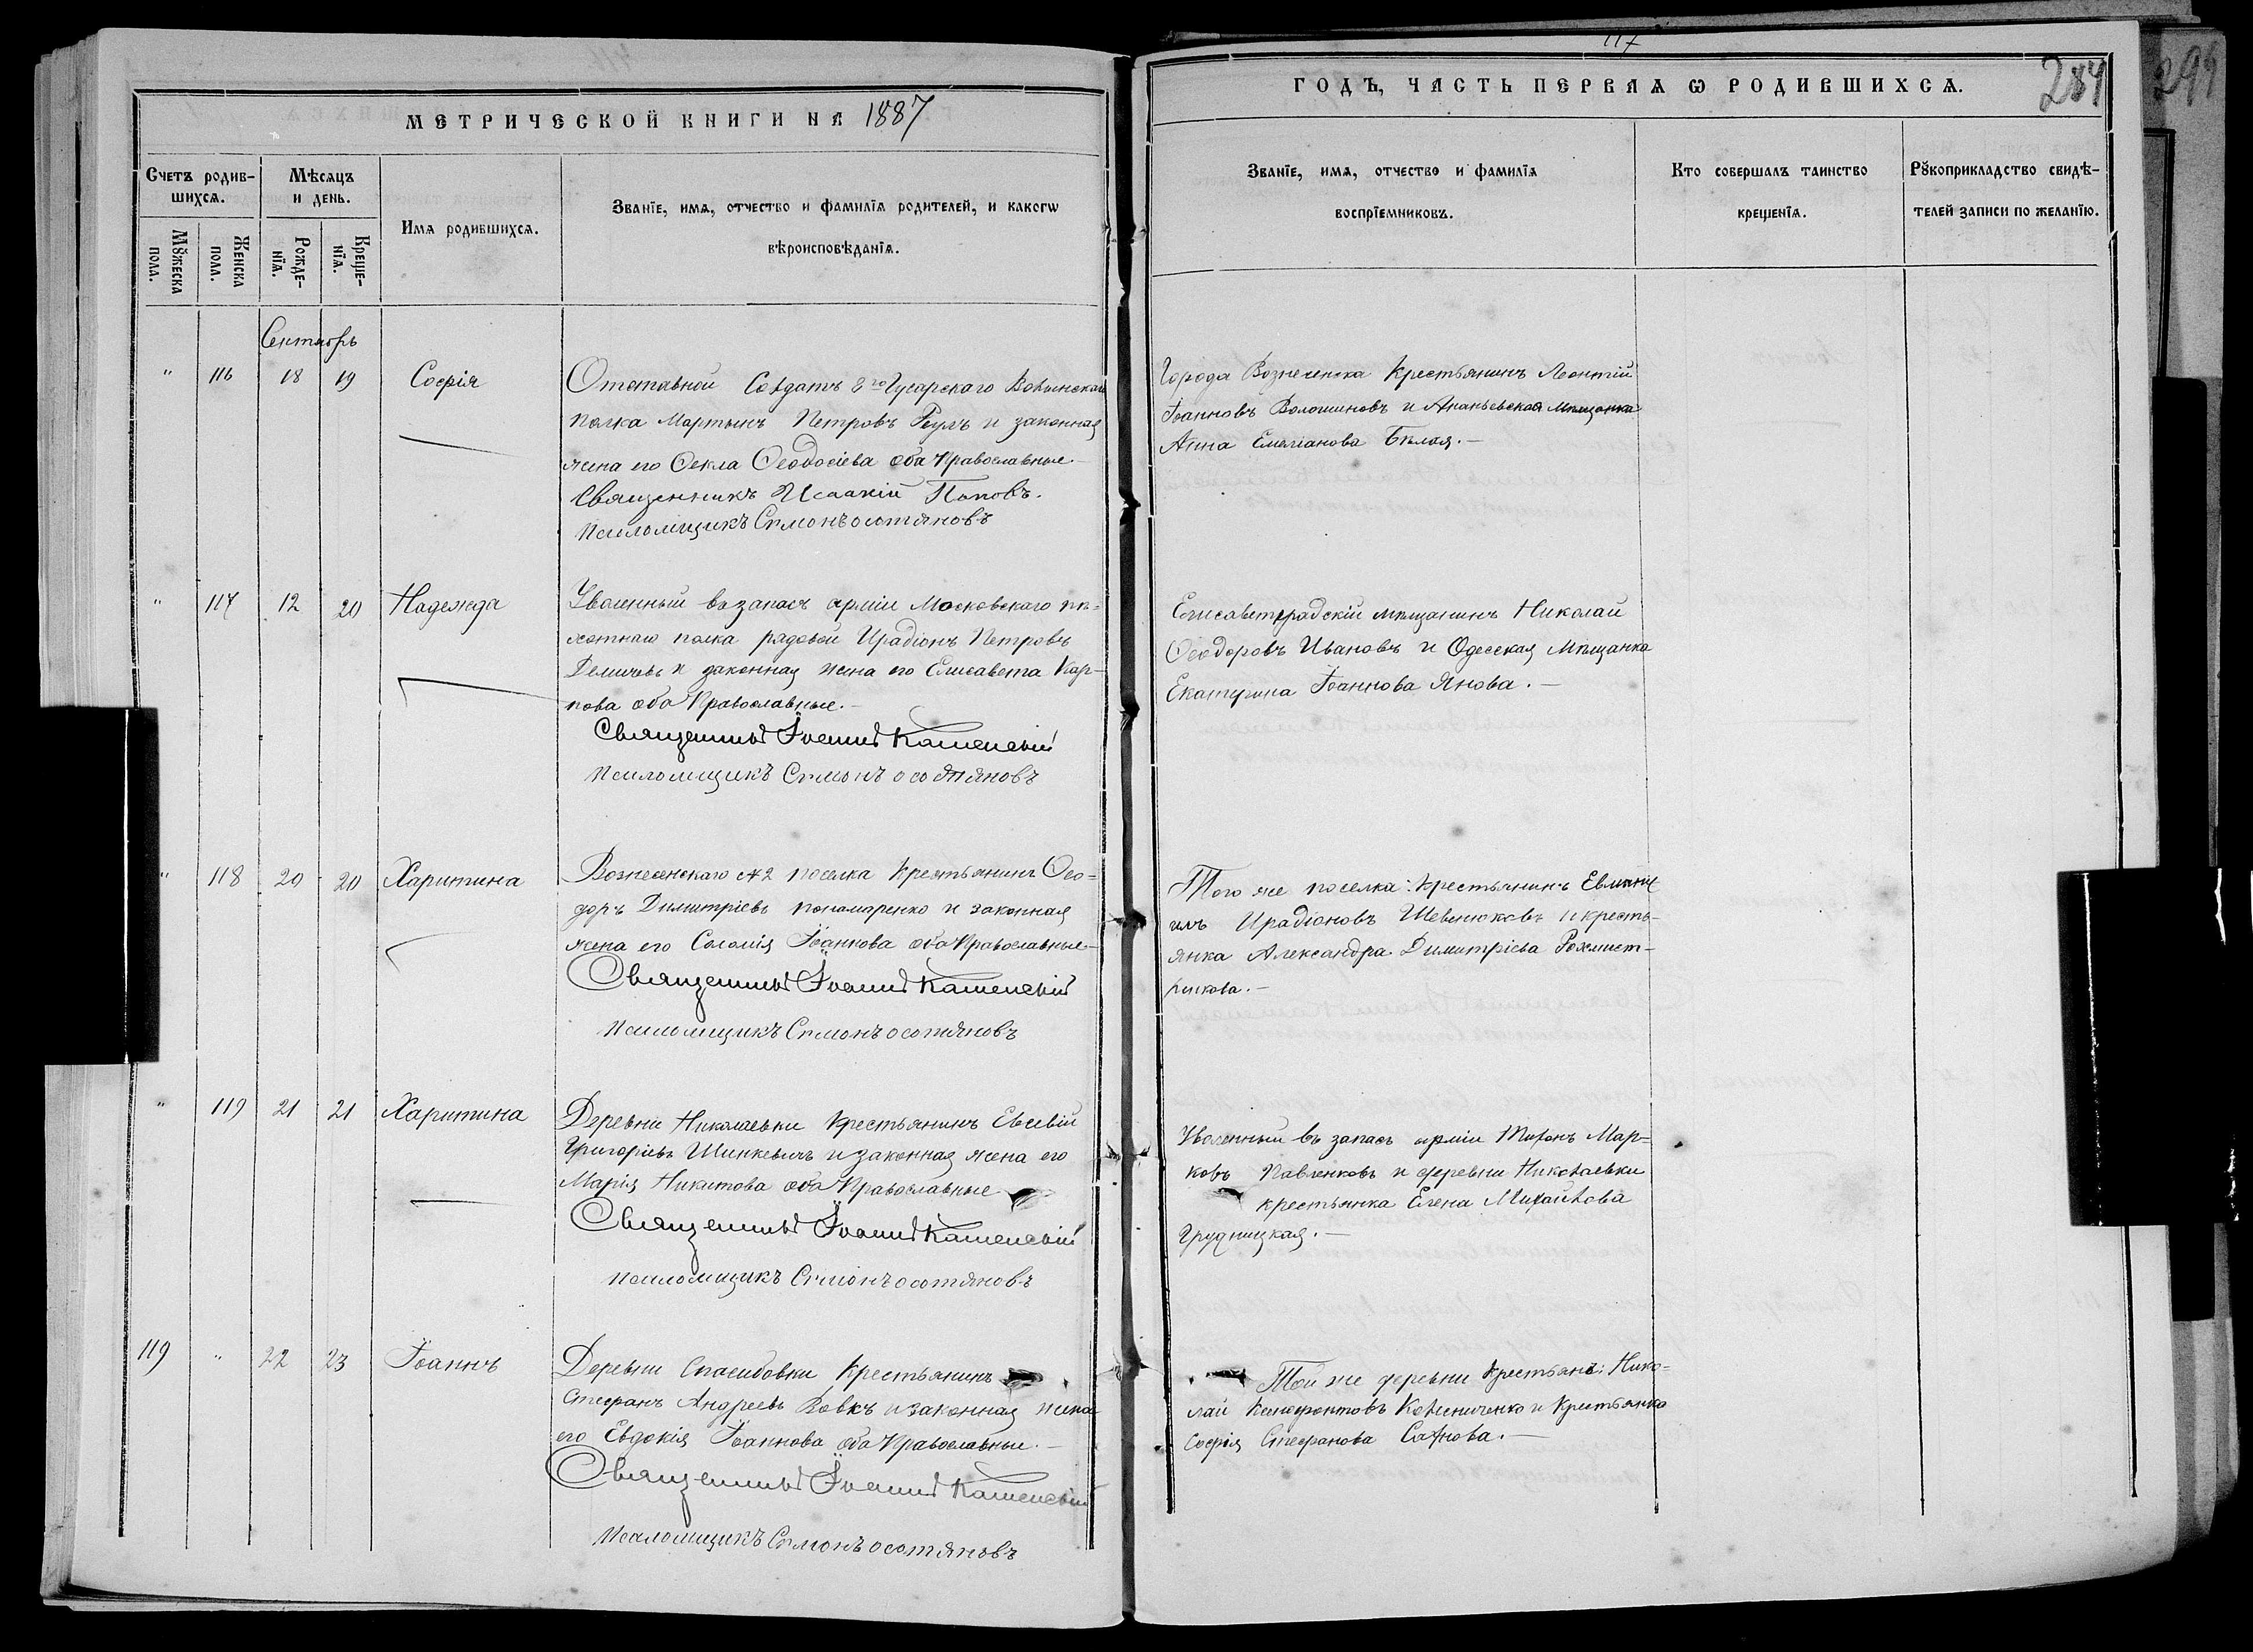 МЕТРИЧЕСКОЙ КНИГИ НА 1887
Счетъ родив-
шихся.
Мѣсяцъ
и день.
Имя родившихся.
Званіе, имя, отчество и фамилія родителей, и какогѡ
вѣроисповѣданія.
Мꙋжеска
пола.
Женска
пола.
Рожде-
нія.
Креще-
нія.
Сентябрь
" 116 18 19 Софія
Отставной Солдатъ 8го Гусарскаго
полка Мартынъ Петровъ и законная
жена его Ѳекла Ѳеодосіева оба Православные.—
Священникъ Исаакій Поповъ.
Псаломщикъ
" 117 12 20 Надежда
Уволенный въ запасъ арміи Московскаго пѣ=
хотнаго полка рядовой Ирадіонъ Петровъ
и законная жена его Елисавета Кар-
пова оба Православные.—
Священникъ Іоаннъ Каменскій
Псаломщикъ
" 118 20 20 Харитина
Вознесенскаго №2 поселка Крестьянинъ Ѳео=
доръ Димитріевъ Пономаренко и законная
жена его Соломія Іоаннова оба Православные.—
Священникъ Іоаннъ Каменскій
Псаломщикъ
" 119 21 21 Харитина
Деревни Николаевки Крестьянинъ Евсевій
Григоріевъ Шинкевичъ и законная жена его
Марія Никитова оба Православные
Священникъ Іоаннъ Каменскій
Псаломщикъ
119 " 22 23 Іоаннъ
Деревни Спасибовки Крестьянинъ
Стефанъ Андреевъ Вовкъ и законная жена
его Евдокія Іоаннова оба Православные.—
Священникъ Іоаннъ Каменскій
Псаломщикъ
117
ГОДЪ, ЧАСТЬ ПЕРВАЯ Ѡ РОДИВШИХСЯ.
284
Званіе, имя, отчество и фамилія
воспріемниковъ.
Кто совершалъ таинство
крещенія.
Рꙋкоприкладство свидѣ-
телей записи по желанію.
Города Вознесенска Крестьянинъ Леонтій
Іоанновъ Волошиновъ и Ананьевская Мѣщанка
Анна Емеліанова Бѣлая.—
Елисаветградскій мѣщанинъ Николай
Ѳеодоровъ Ивановъ и Одесская Мѣщанка
Екатерина Іоаннова Янова.—
Того же поселка: Крестьянинъ
Ирадіоновъ и кресть-
янка Александра Димитріева
Уволенный въ запасъ арміи Тихонъ Мар=
ковъ Павленковъ и деревни Николаевки
крестьянка Елена Михайлова
Грудницкая.—
Той же деревни Крестьян: Нико=
лай Ксенофонтовъ Колесниченко и Крестьянка
Софія Стефанова